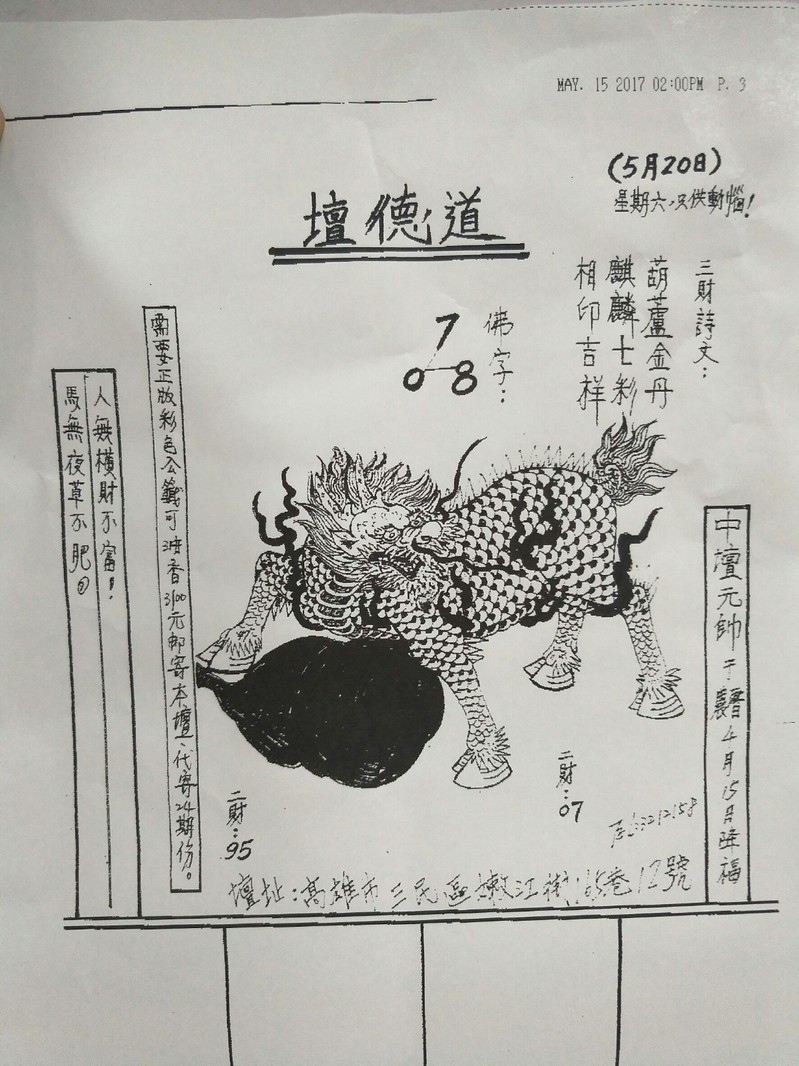 MAY. 15 2017 02:00PM P. 3
(5月20日)
星期六,只供動惱!
道德壇
三財詩文:
葫蘆金丹
麒麟七彩
相印吉祥
佛字:
7
0 8
需要正版彩色公籤可添香3100元郵寄本壇、代寄24期份。
人無橫財不富!
馬無夜草不肥。
中壇元帥于農曆4月15日降福
二財:07
二財:95
壇址:高雄市三民區嫩江街165巷12號